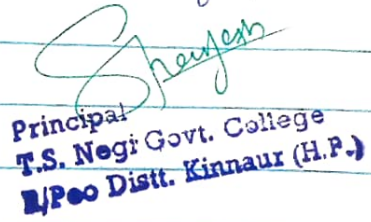 Principal
T.S. Negi Govt. College
R/Peo Distt. Kinnaur (H.P.)